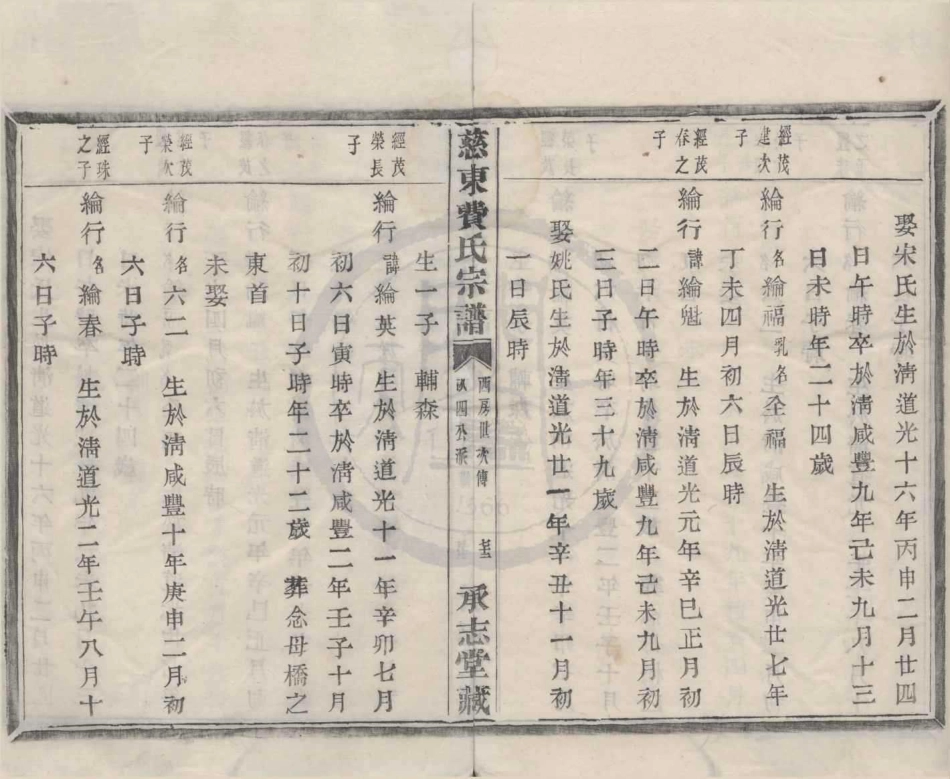 娶宋氏生於清道光十六年丙申二月廿四
日午時卒於清咸豐九年己未九月十三
日未時年二十四歲
經茂
建次
子
綸行名綸福乳名全福生於清道光廿七年
丁未四月初六日辰時
經茂
春之
子
綸行諱綸魁 生於清道光元年辛巳正月初
二日午時卒於清咸豐九年己未九月初
三日子時年三十九歲
娶姚氏生於清道光廿一年辛丑十一月初
一日辰時
慈東費氏宗譜
西房世次傳
四 派
承志堂藏
生一子 輔森
經茂
榮長
子
綸行諱綸英 生於清道光十一年辛卯七月
初六日寅時卒於清咸豐二年壬子十月
初十日子時年二十二歲 葬念母橋之
東首
未娶
經茂
榮次
子
綸行名六二 生於清咸豐十年庚申二月初
六日子時
經珠
之子
綸行名綸春 生於清道光二年壬午八月十
六日子時